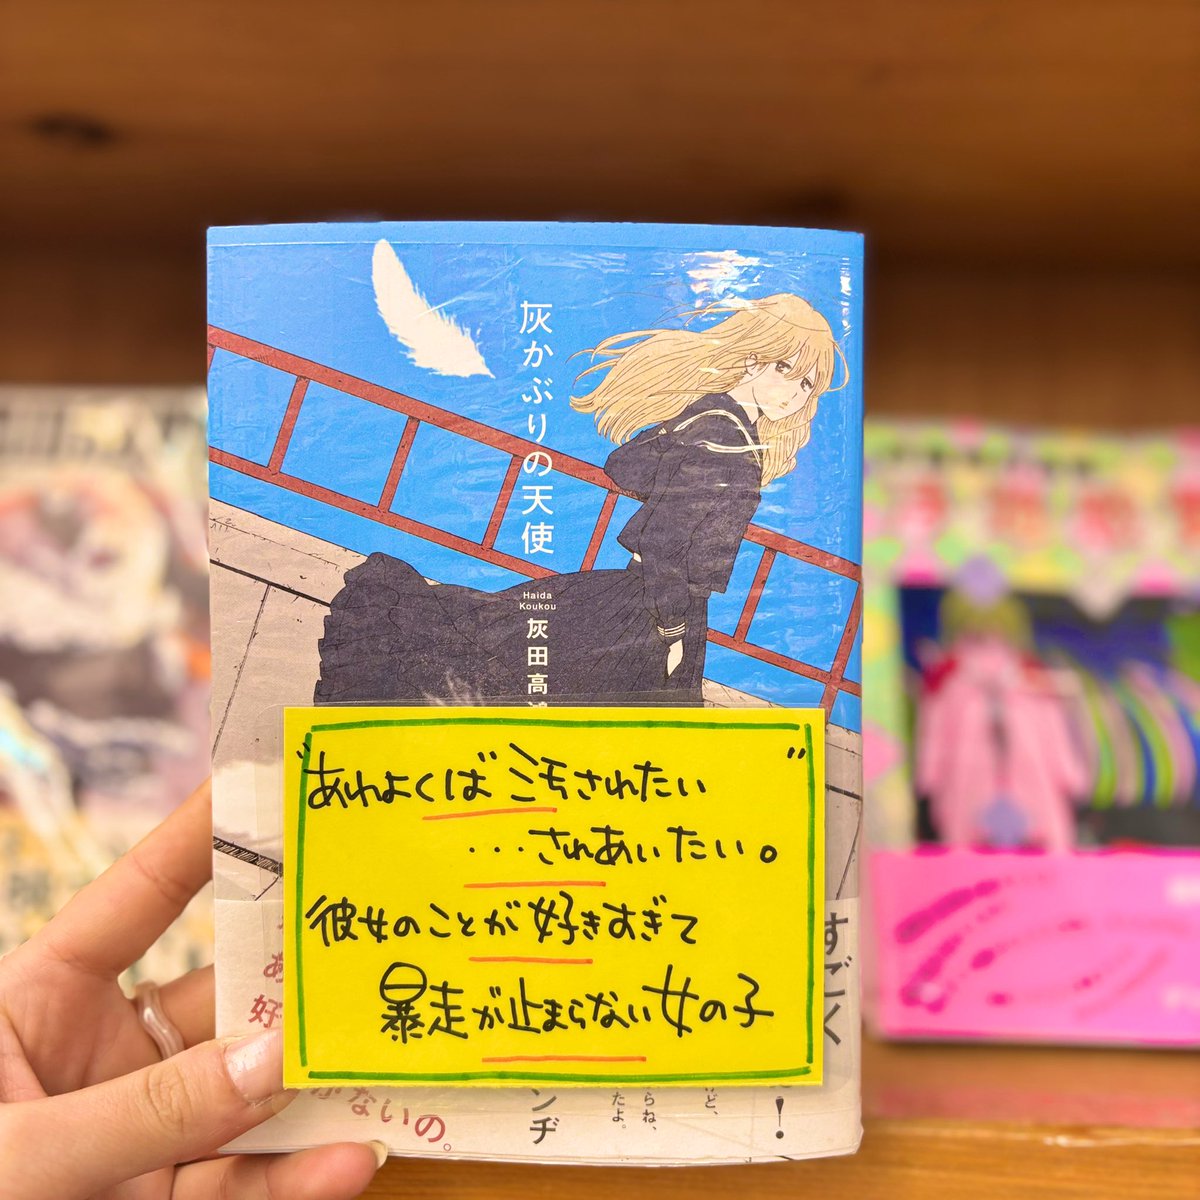 灰かぶりの天使
Haida
Koukou
灰田高
"あわよくば 汚されたい"
...されあいたい。
彼女のことが好きすぎて
暴走が止まらない女の子
すごく
あ
好
ないの。
ンヂ
たよ。
らね、
ど、
！